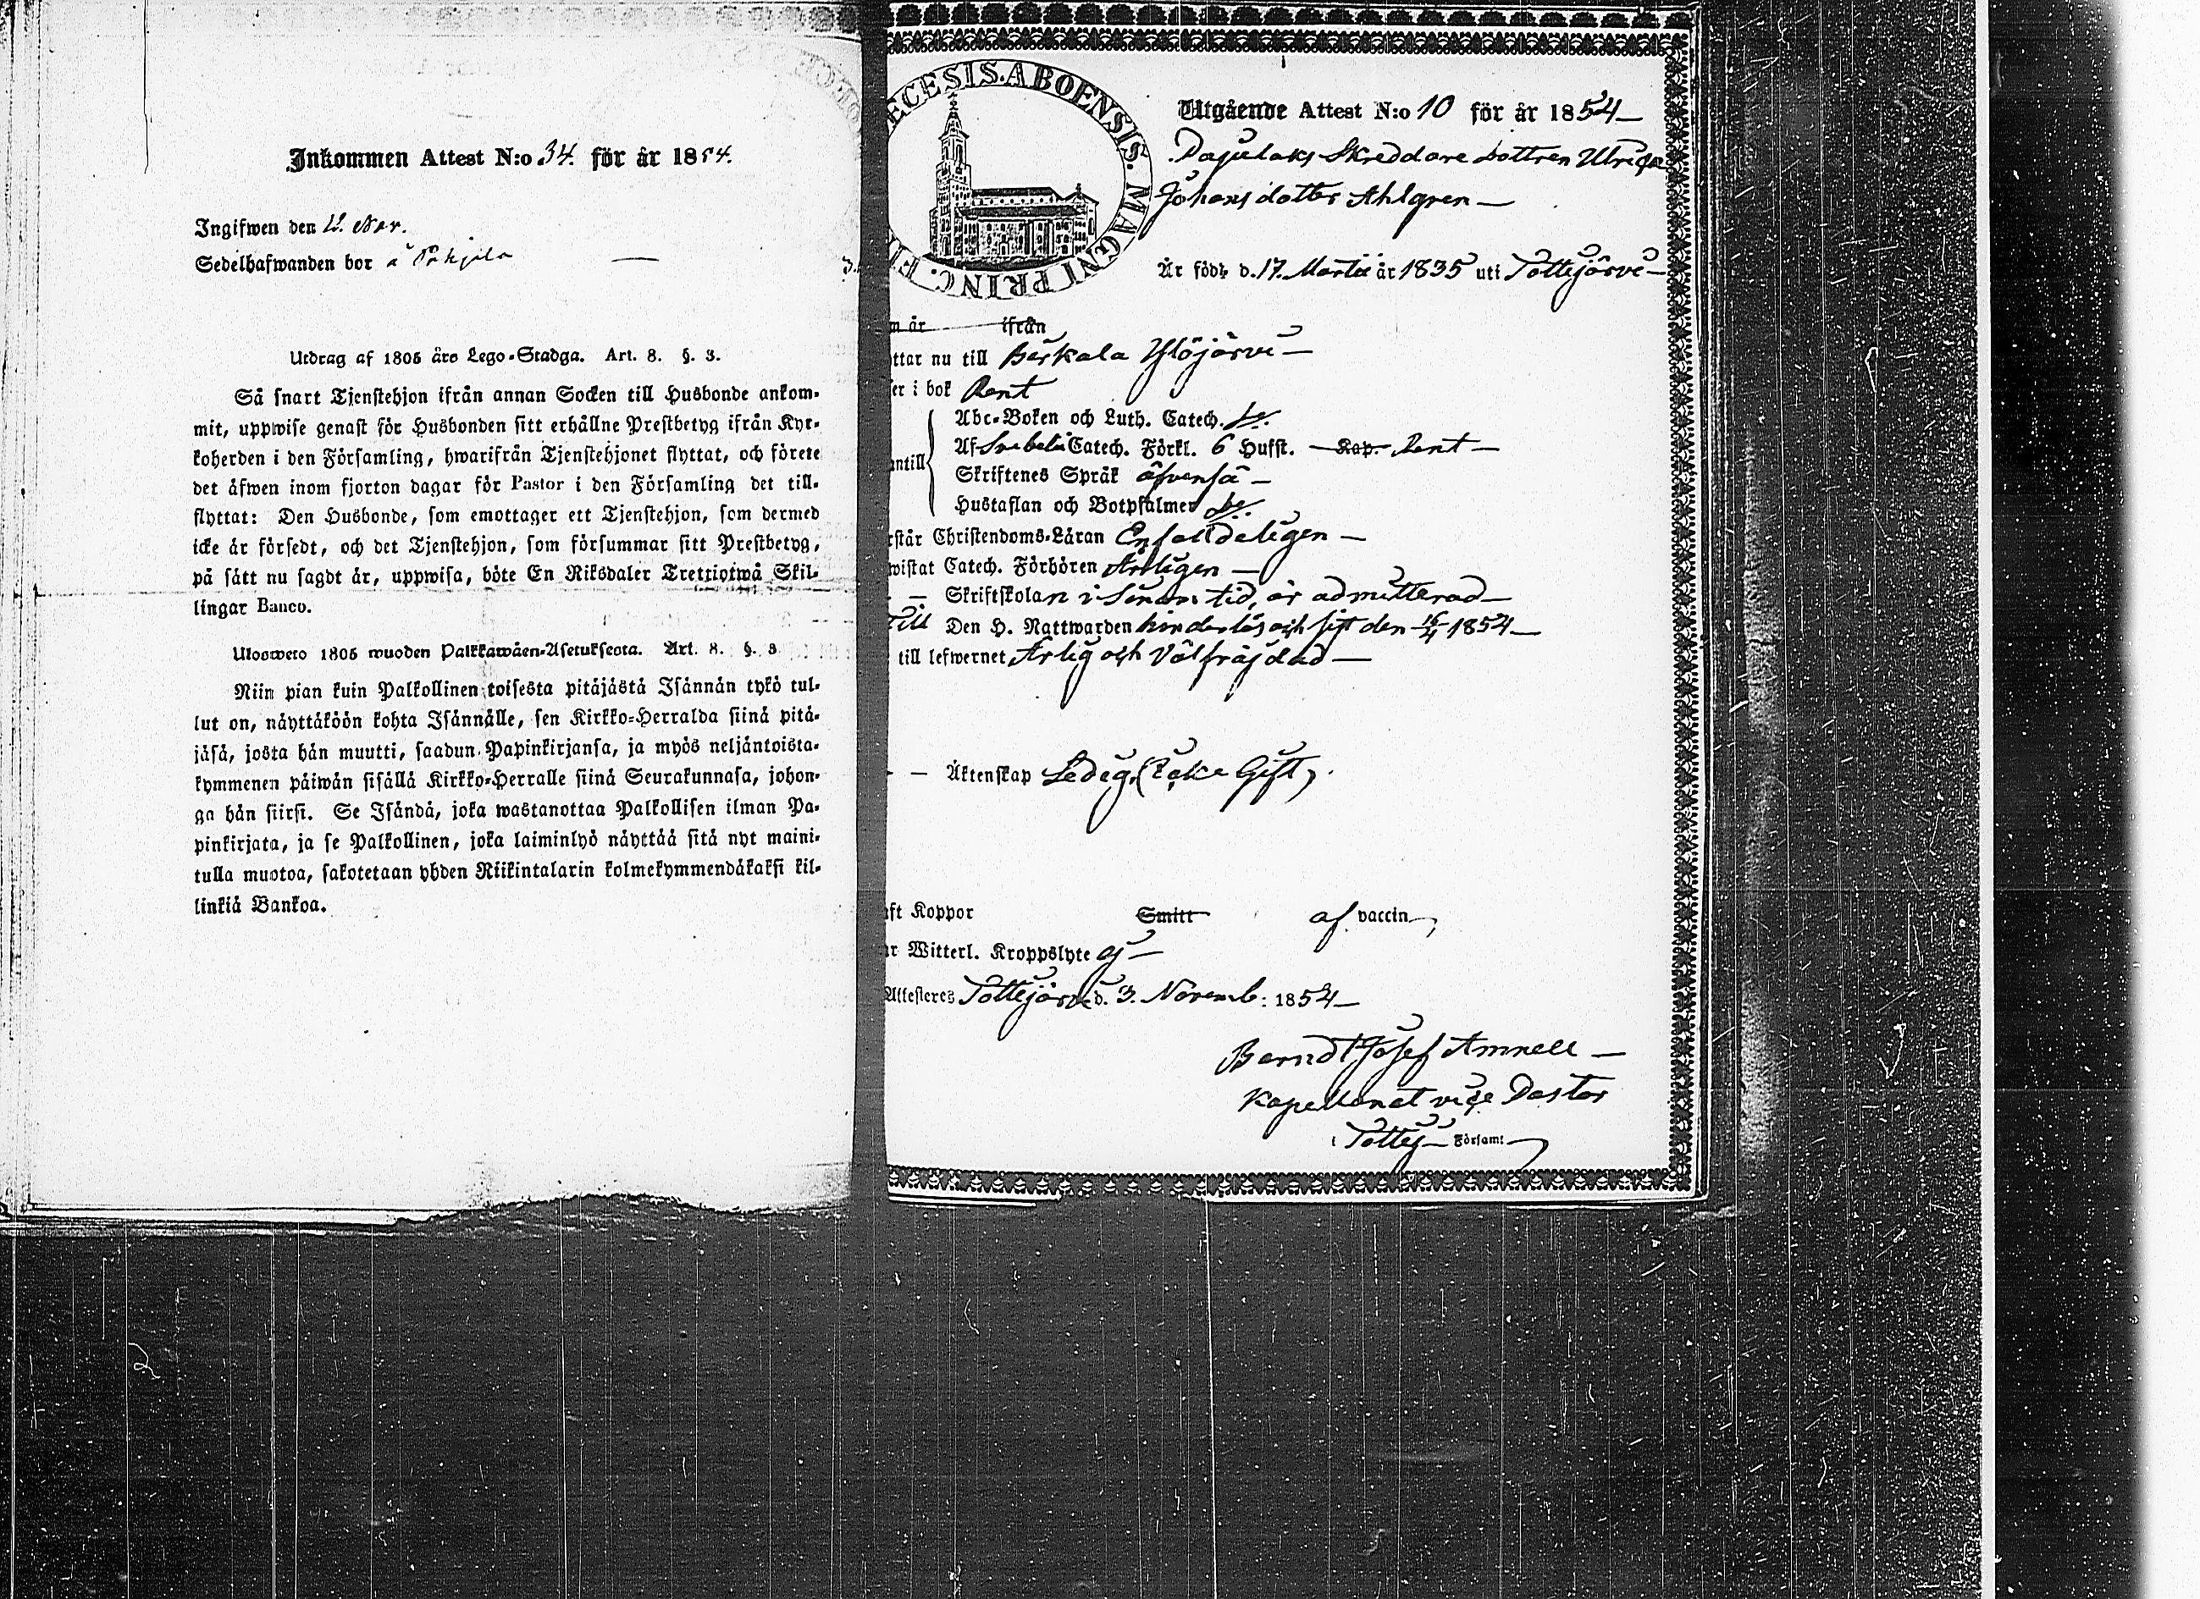 Inkommen Attest N:o 34. för år 1854.
Ingifwen den 12. Nov.
Sedelhafwanden bor å Pohjola
Utdrag af 1805 års Lego-Stadga. Art. 8. §. 3.
Så snart Tjenstehjon ifrån annan Socken till Husbonde ankom-
mit, uppwise genast för Husbonden sitt erhållne Prestbetyg ifrån Kyr-
koherden i den Församling, hwarifrån Tjenstehjonet flyttat, och förete
det äfwen inom fjorton dagar för Pastor i den Församling det till-
flyttat: Den Husbonde, som emottager ett Tjenstehjon, som dermed
icke är försedt, och det Tjenstehjon, som försummar sitt Prestbetyg,
på sätt nu sagdt är, uppwisa, böte En Riksdaler Trettiotwå Skil-
lingar Banco.
Ulosweto 1805 wuoden Palkkawäen-Asetuksesta. Art. 8. §. 3
Niin pian kuin Palkollinen toisesta pitäjästä Isännän tykö tul-
lut on, näyttäköön kohta Isännälle, sen Kirkko-Herralda siinä pitä-
jäsä, josta hän muutti, saadun Papinkirjansa, ja myös neljäntoista-
kymmenen päiwän sisällä Kirkko-Herralle siinä Seurakunnasa, johon-
ga hän siirsi. Se Isändä, joka wastanottaa Palkollisen ilman Pa-
pinkirjata, ja se Palkollinen, joka laiminlyö näyttää sitä nyt maini-
tulla muotoa, sakotetaan yhden Riikintalarin kolmekymmendäkaksi kil-
linkiä Bankoa.
ECESIS. ABOENSIS. MAGNI PRINC. F
Utgående Attest N:o 10 för år 1854
Skreddare dottren Ulrica
Johansdotter Ahlgren
Är född d. 17. Martii år 1835 uti Tottijärvi
m år ifrån
ttar nu till Birkala Ylöjärvi
er i bok Rent
Abc-Boken och Luth. Catech. do.
Af Svebelii Catech. Förkl. 6 Hufst. Kap. Rent
antill
Skriftenes Språk äfvenså
Hustaflan och Botpsalmer do.
rstår Christendoms-Läran Enfalldeligen
wistat Catech. Förhören Årligen
Skriftskolan i sinom tid, är admitterad
Till Den H. Nattwarden hinderlös och sist den 16/4 1854
till lefwernet Ärlig och Välfräjdad
Äktenskap Ledig (Icke Gift)
ft Koppor Smitt af vaccin
r Witterl. Kroppslyte ej
Attesteres Tottijärvi d. 3. Novemb: 1854
Berndt Josef Amnell
Kapellan et vice Pastor
i Tottij Församl